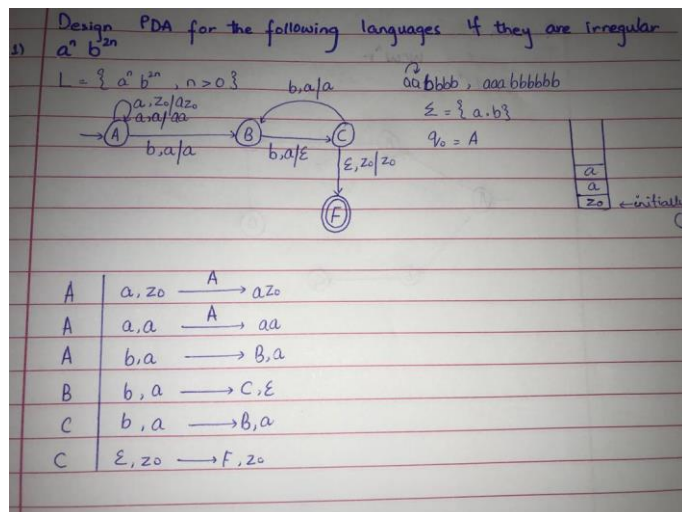 Design PDA for the following languages if they are irregular
1) aⁿ b²ⁿ
L = { aⁿ b²ⁿ , n>0 }
b,a/a
aabbbb , aaabbbbbb
a, z₀/az₀
a,a/aa
Σ = { a.b}
A
B
C
q₀ = A
b,a/a
b,a/ε
ε, z₀/z₀
a
a
z₀ ←initially
F
A | a, z₀ —A→ az₀
A | a,a —A→ aa
A | b,a ⟶ B,a
B | b, a ⟶ C,ε
C | b, a ⟶ B,a
C | ε, z₀ ⟶ F, z₀